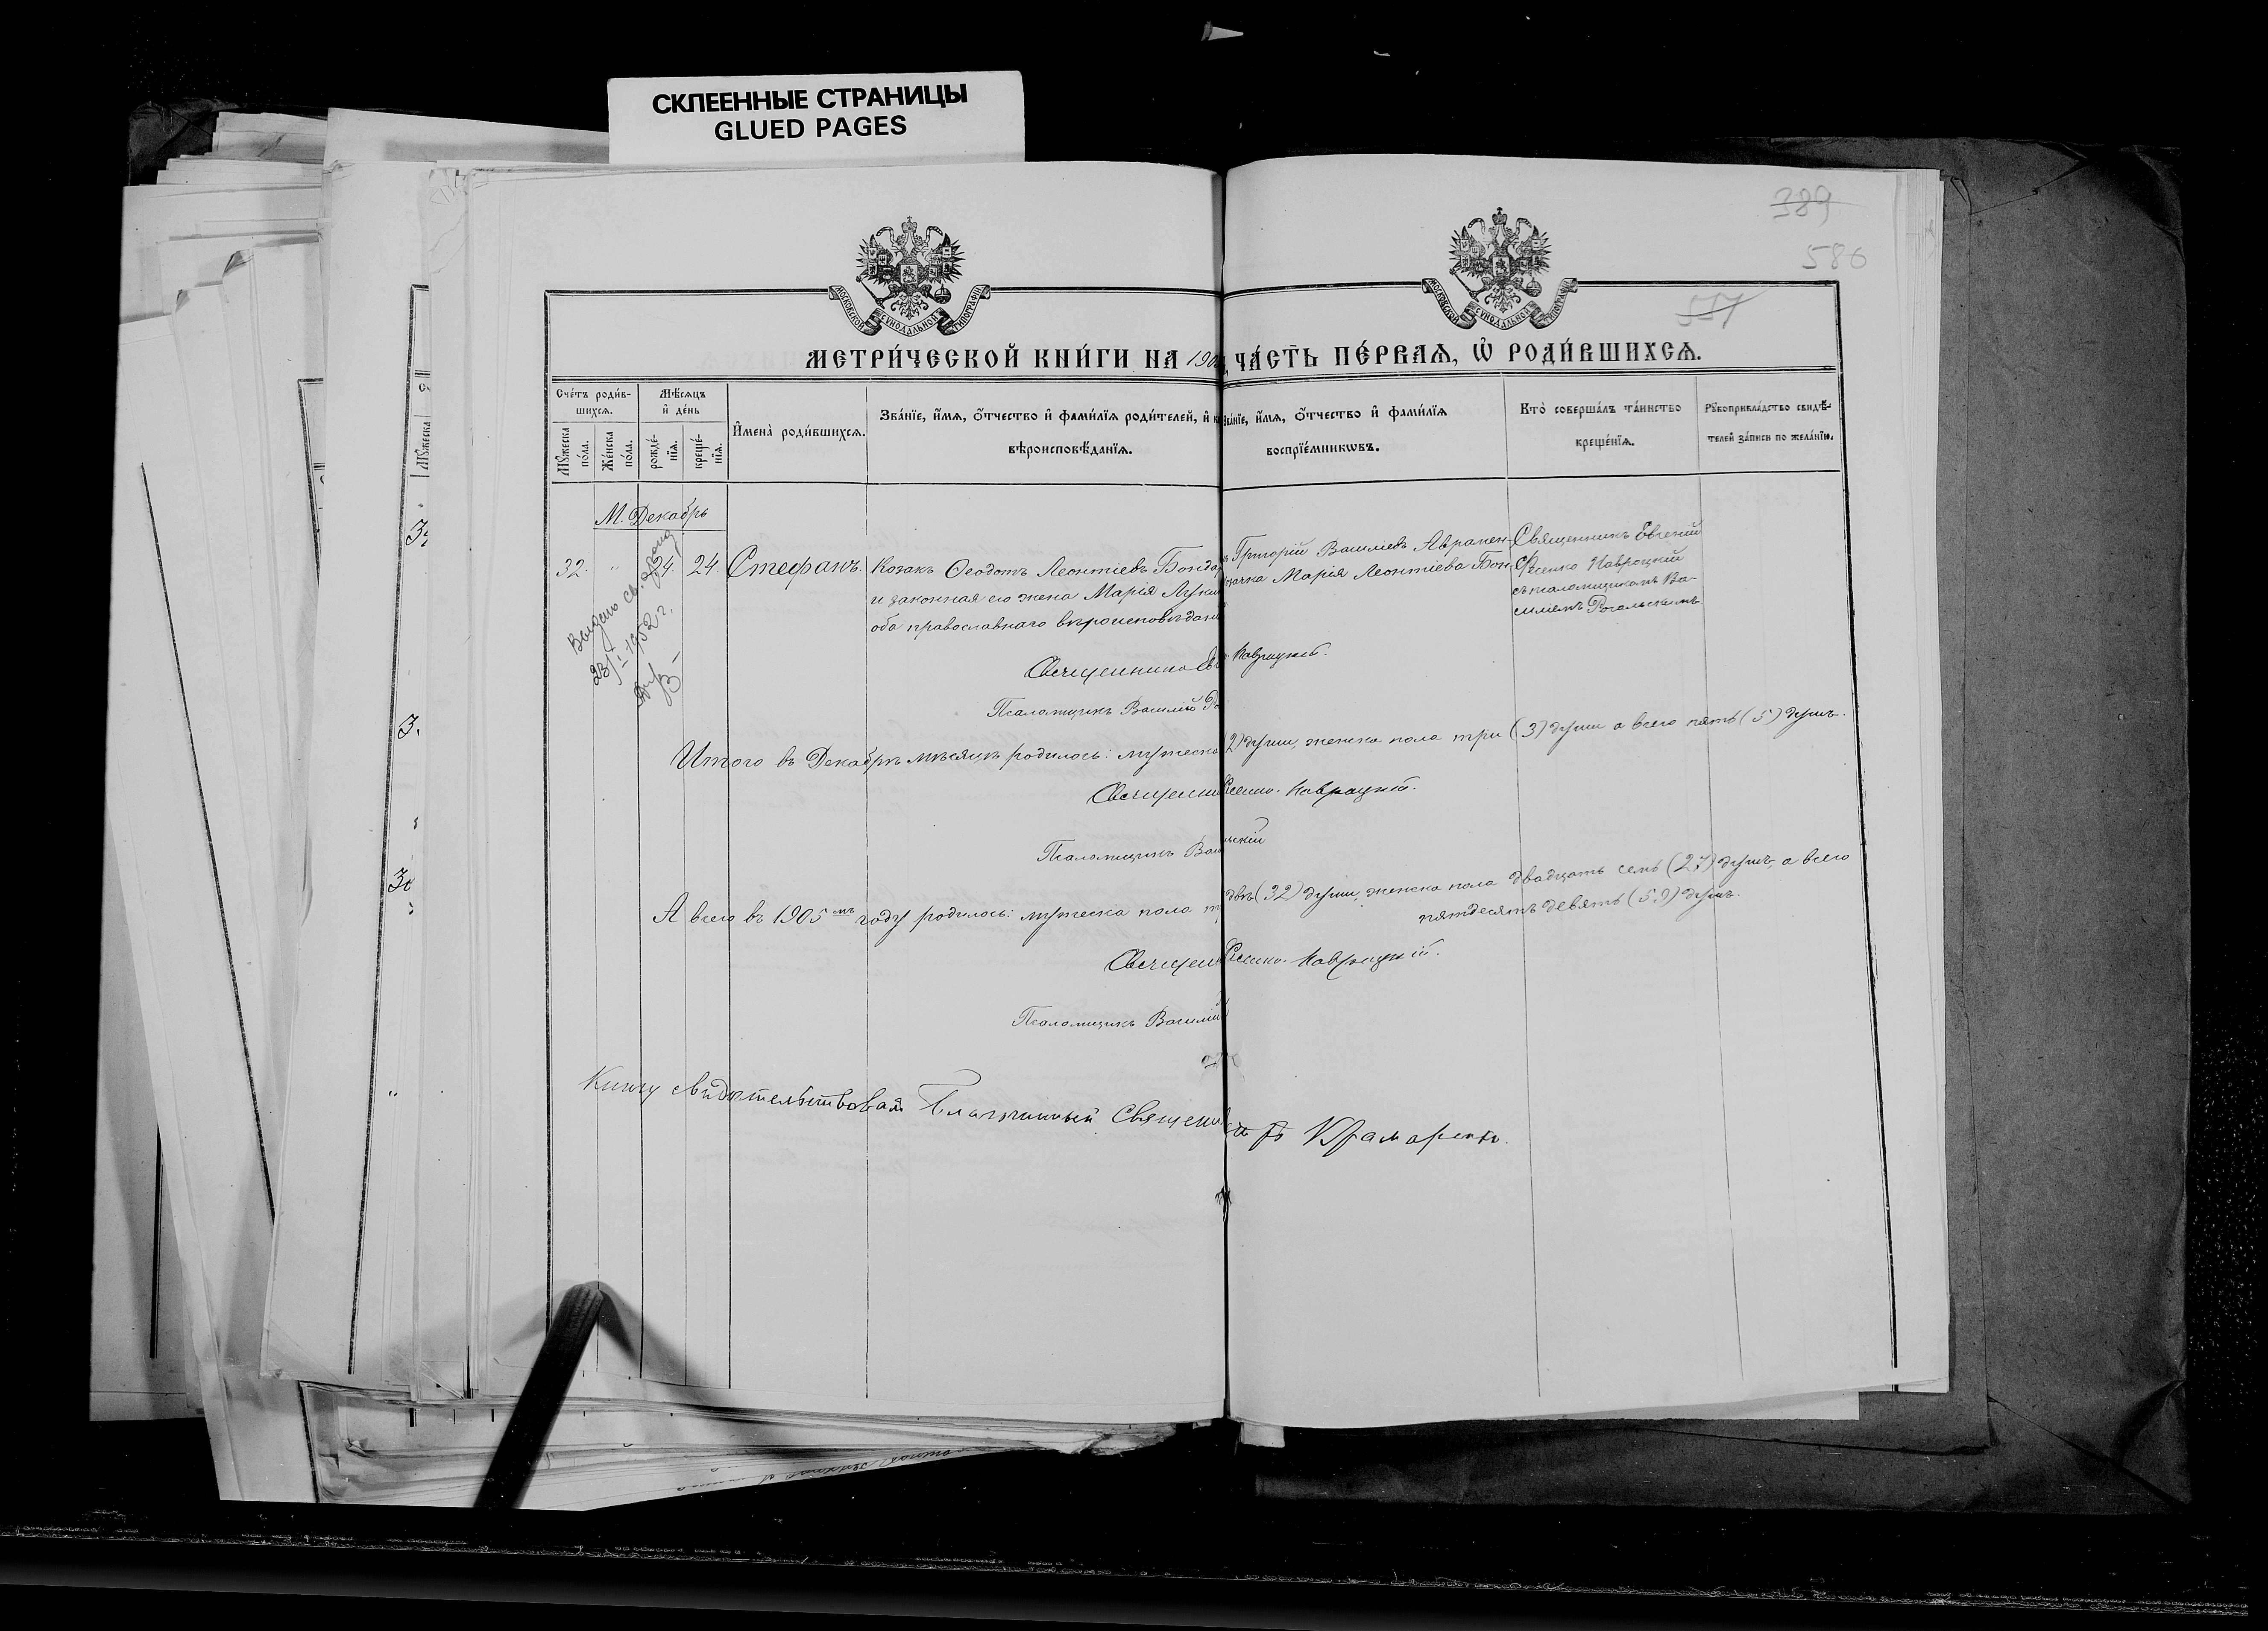 СКЛЕЕННЫЕ СТРАНИЦЫ
GLUED PAGES
389
580
557
МОСКОВСКОЙ СѴНОДАЛЬНОЙ ТИПОГРАФІИ
МОСКОВСКОЙ СѴНОДАЛЬНОЙ ТИПОГРАФІИ
МЕТРИ́ЧЕСКОЙ КНИ́ГИ НА 190
ЧА́СТЬ ПЕ́РВАѦ, Ѡ҆ РОДИ́ВШИХСѦ.
Сче́тъ роди́в-
шихсѧ.
Мѣ́сѧцъ
и҆ де́нь
Мꙋ́жеска
по́ла.
Же́нска
по́ла.
рожде́-
нїѧ.
креще́-
нїѧ.
И҆мена̀ роди́вшихсѧ.
Зва́нїе, и҆́мѧ, ѻ҆́тчество и҆ фами́лїѧ роди́телей, и҆
вѣроисповѣ́данїѧ.
Зва́нїе, и҆́мѧ, ѻ҆́тчество и҆ фами́лїѧ
воспрїе́мникѡвъ.
Кто̀ соверша́лъ та́инство
креще́нїѧ.
Рꙋкоприкла́дство свидѣ́-
телей за́писи по жела́нїю.
М. Декабрь
32. " 24. 24. Стефанъ.
Козакъ Ѳеодотъ Леонтіевъ Бонда
и законная его жена Марія Луки
оба православнаго вѣроисповѣдан
Григорій Василіевъ Аврамен-
зачка Марія Леонтіева Бон-
Священникъ Евгеній
Фесенко Навроцкій
съ псаломщикомъ Ва-
силіемъ Рогальскимъ
Выдано св.
23/I 1952 г.
Священникъ Ев
Навроцкій.
Псаломщикъ Василій
Итого въ Декабрѣ мѣсяцѣ родилось: мужеска
2) души, женска пола три (3) души а всего пять (5) душъ.
Священни
Фесенко-Навроцкій.
Псаломщикъ Вас
ьскій
А всего въ 1905мъ году родилось: мужеска пола т
двѣ (32) души, женска пола двадцать семь (27) душъ, а всего
пятдесятъ девять (59) душъ.
Священ
Фесенко-Навроцкій.
Псаломщикъ Василій
Книгу свидѣтельствовалъ Благочинный Священ
Крамаренко.